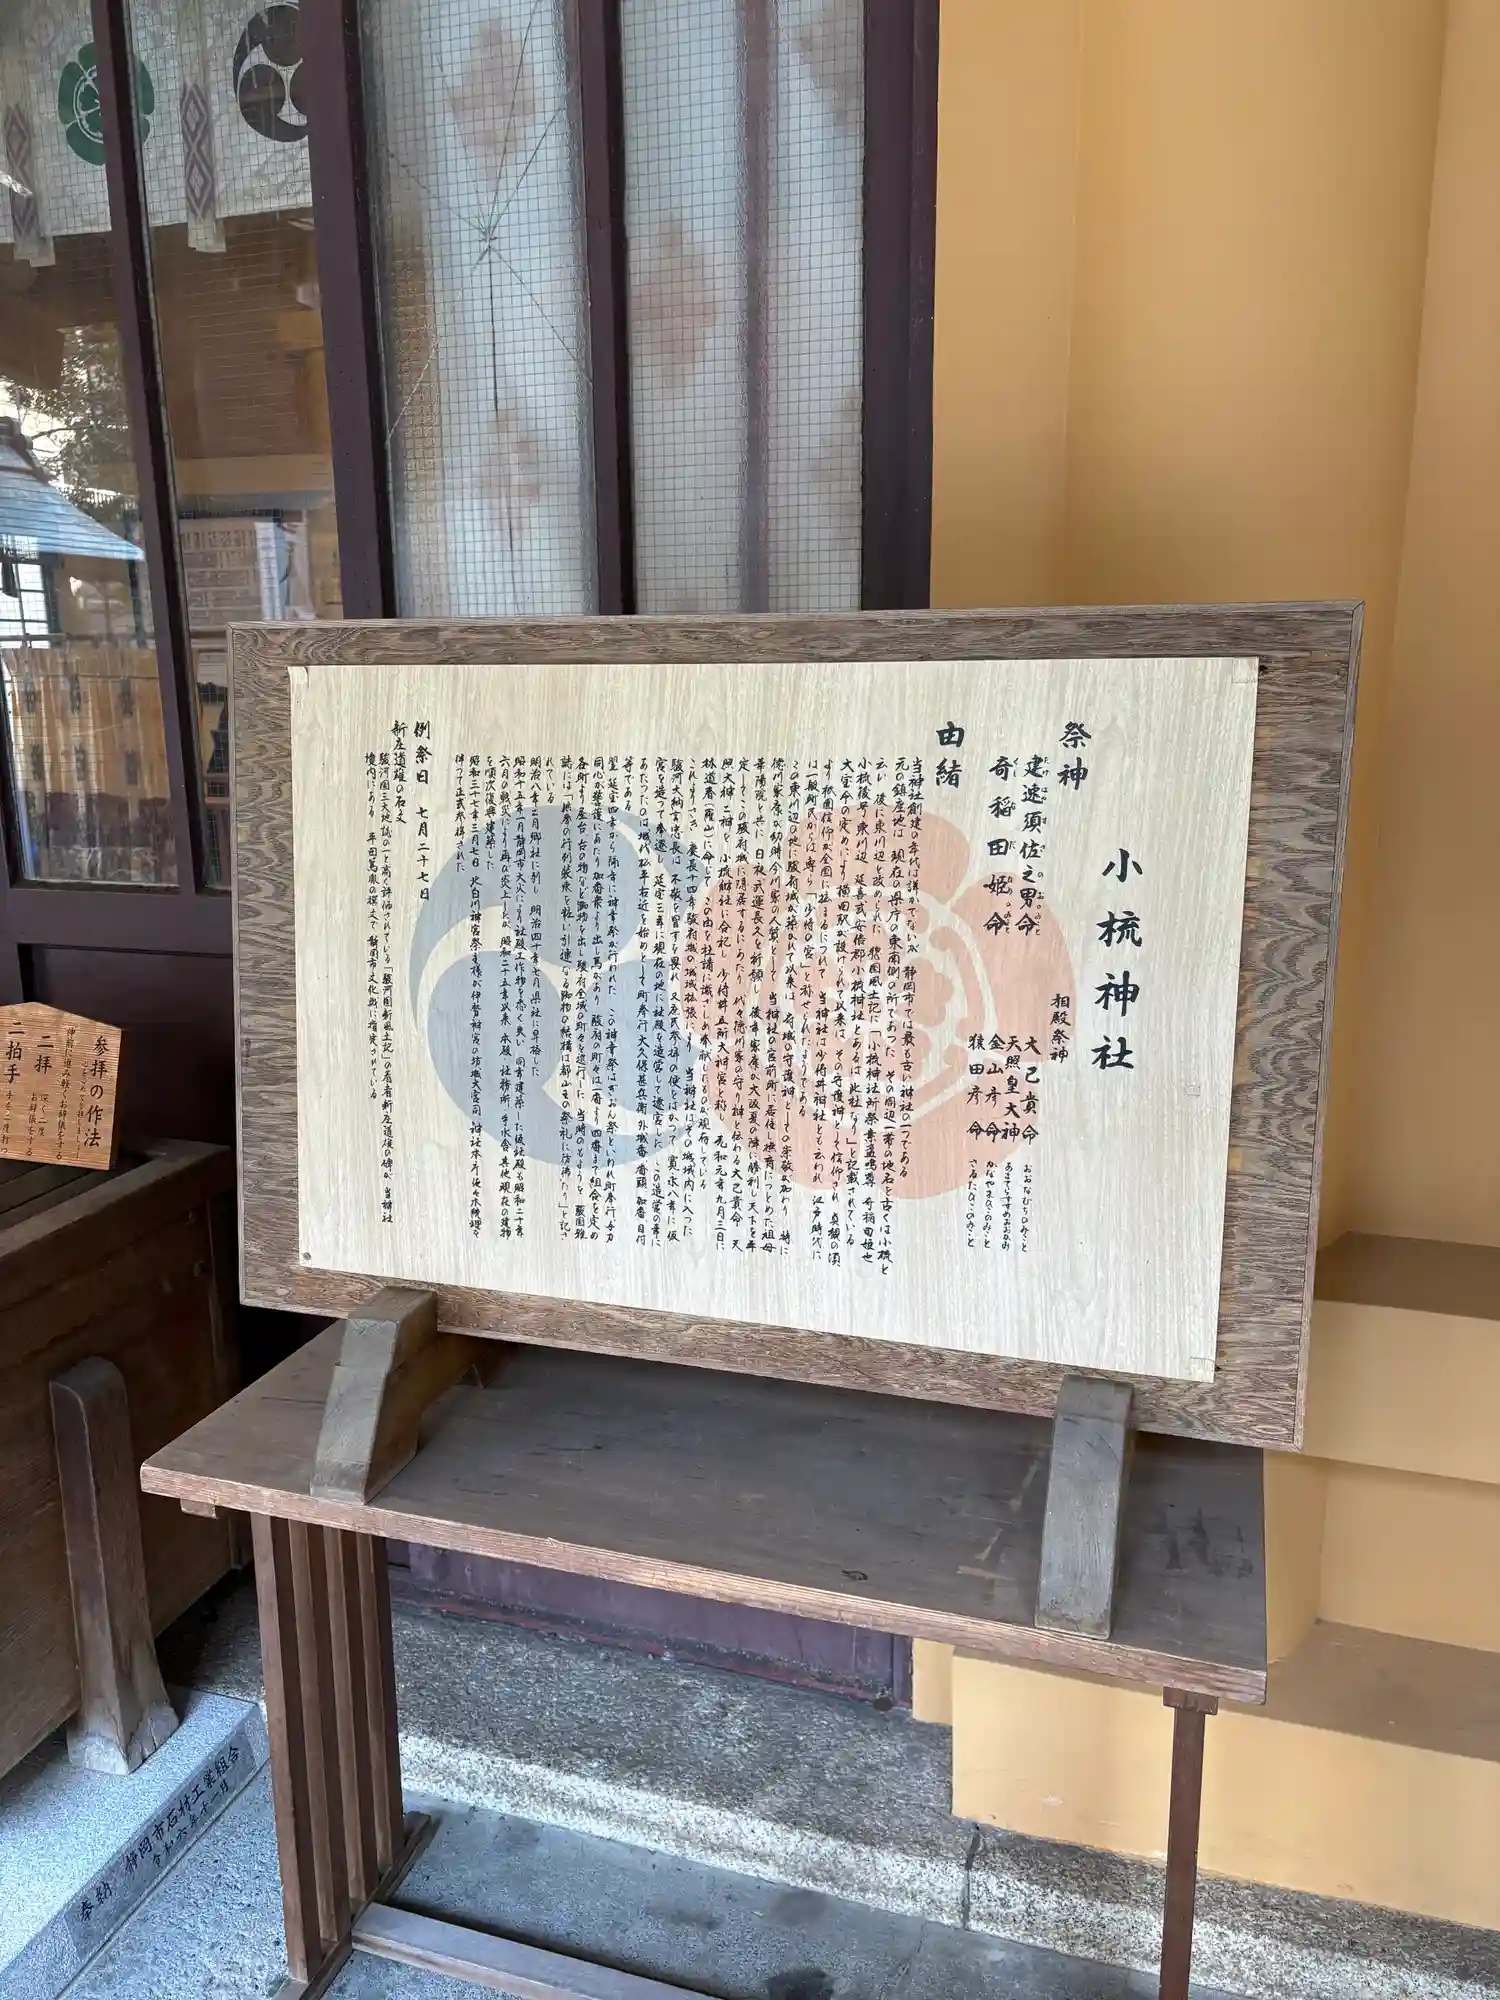 小梳神社
祭神
建速須佐之男命
たけはやすさのおのみこと
奇稲田姫命
くしなだひめのみこと
相殿祭神
大己貴命 おおなむちのみこと
天照皇大神 あまてらすすめおおかみ
金山彦命 かなやまひこのみこと
猿田彦命 さるたひこのみこと
由緒
当神社創建の年代は詳かでないが 静岡市では最も古い神社の一つである
元の鎮座地は 現在の県庁の東南側の所であった その周辺一帯の地名を古くは小梳と
云い 後に東川辺を改められた 駿国風土記に「小梳神社所祭素盞嗚尊 奇稲田姫也
小梳後号東川辺 延喜式安倍郡小梳神社とあるは此社なり」と記載されている
大宝令の定めにより横田駅が設けられて以来は その守護神として信仰され 貞観の頃
より祇園信仰が全国に拡まるにつれて 当神社は少将井神社とも云われ 江戸時代に
は一般町民からは専ら「少将の宮」と称せられたようである
この東川辺の地に駿府城が築かれて以来は 府城の守護神としての崇敬が加わり 特に
徳川家康が幼時今川家の人質として 当神社の宮前町に居住し撫育につとめた祖母
華陽院と共に 日秋武運長久を祈願し 後年家康が大阪夏の陣に勝利し天下を平
定してこの駿府城に隠居するにあたり 代々徳川家の守り神と伝わる大己貴命 天
照大神二神を 小梳神社に合祀し 少将井五所大神宮と称し 元和元年九月三日に
林道春(羅山)に命じて この由を社請に識さしめ奉献したものが現存している
これよりさき 慶長十四年駿府城の城域拡張により 当神社はその城域内に入った
駿河大納言忠長は 不敬を冒すを畏れ 又庶民参拝の便をはかって 寛永八年に仮
宮を造って奉遷し 延宝三年に現在の地に社殿を造営して遷宮した この造営の事に
あたったのは城代松平右近を始めとして町奉行大久保甚兵衛 外城番 番頭 加番 目付
等である
翌延宝四年から隔年に神幸祭が行われた この神幸祭はぎおん祭といわれ町奉行与力
同心が警護にあたり 加番衆より出し馬があり 駿府の町々は一番より四番まで組合を定め
各町より屋台 台の物など踟物を出し 駿府全城の町々を巡行した 当時のもようを 駿国雑
誌には「供奉の行列装束を粧い引連なる踟物の結構は都山王の祭礼に彷彿たり」と記さ
れている
明治八年二月郷社に列し 明治四十年七月県社に昇格した
昭和十五年一月静岡市大火により社殿工作物を悉く失い 同年建築した仮社殿も昭和二十年
六月の戦災により再び炎上したが 昭和二十五年以来 本殿・社務所 手水舎 其他現在の建物
を順次復興建築した
昭和三十七年三月七日 北白川神宮祭主様が伊勢神宮の坊城大宮司 神社本庁佐々木統理を
伴って正式参拝された
例祭日 七月二十七日
新庄道雄の石文
駿河国三大地誌の一と高く評価されている「駿河国新風土記」の著者新庄道雄の碑が 当神社
境内にある 平田篤胤の撰文で 静岡市文化財に指定されている
参拝の作法
二拝
深く二度
お辞儀をする
二拍手
奉納
静岡市石材工業組合
令和六年十一月